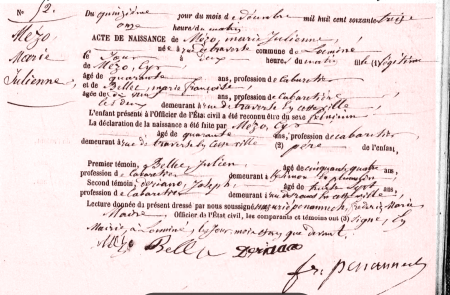 No 52.
Mézo
Marie
Julienne
Du quinzième jour du mois de décembre mil huit cent soixante treize
onze heures du matin
ACTE DE NAISSANCE de Mézo, marie Julienne,
née à rue de traverse commune de Locminé
ce jour à deux heures du matin fille (1) légitime
de Mézo, Cyr
âgé de quarante ans, profession de cabaretier
et de Bellec, marie françoise
âgée de ans, profession de Cabaretière
les deux demeurant à rue de traverse en cette ville
L'enfant présenté à l'Officier de l'État civil a été reconnu être du sexe féminin
La déclaration de naissance a été faite par Mézo, Cyr
âgé de quarante ans, profession de cabaretier
demeurant à rue de traverse en cette ville (2) père de l'enfant
Premier témoin, Bellec Julien âgé de cinquante quatre ans,
profession de Cabaretier demeurant à
Second témoin, Deriano, Joseph, âgé de trente sept ans,
profession de Cabaretier demeurant à en cette ville
Lecture donnée du présent dressé par nous soussigné Frédéric Marie
Officier de l'État civil, les comparants et témoins ont (3) signé,
Mairie, à Locminé, les jour, mois et an que devant.
Mézo Bellec Deriano